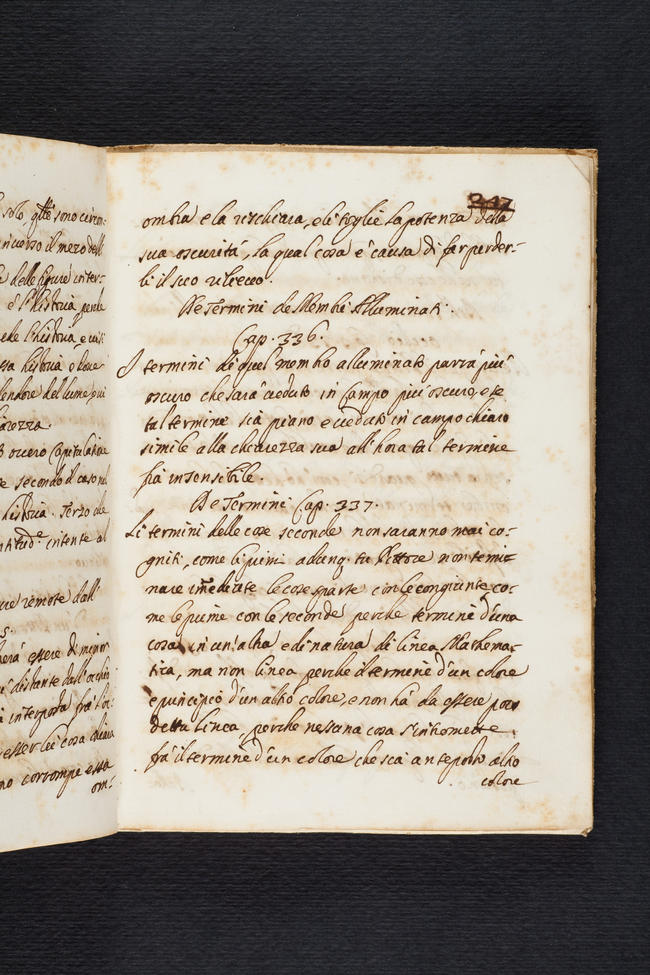 solo, qste sono circon-
inverso il mezo dell
delle figure inter-
è l'historia, perde
vede l'historia, e cosi
ssa historia
lendore del lume, qui
iarezza.
overo Capitulatione
e secondo il caso nel
historia. Terzo che
ntitud.e critente al
re remote dall'
herà essere di minor
distante dall'occhio
interposta fra l'oc-
esser lei cosa chiara
no corrompe essa
om-
ombra e la rischiara, e li toglie la potenza della
sua oscurità, la qual cosa è causa di far perder-
li il suo rilievo.
De Termini de Membri Alluminati.
Cap. 336.
I termini di quel membro alluminato parrà più
oscuro che sarà veduto in Campo più oscuro, e se
tal termine sia piano e veduto in campo chiaro
simile alla chiarezza sua all'hora tal termine
sia insensibile.
De Termini Cap. 337.
Li termini delle cose seconde non saranno mai co-
gniti, come li primi adunq; tu Pittore non termi-
nare imediate le cose sparte con le congiunte, co-
me le prime con le seconde perche termine d'una
cosa in un'altra è di natura di linea Mathema-
tica, ma non linea, perche il termine d'un colore
è principio d'un altro colore, e non hà da essere però
detta linea, perche nessuna cosa s'intromette
frà il termine d'un colore che sia anteposto altro
colore